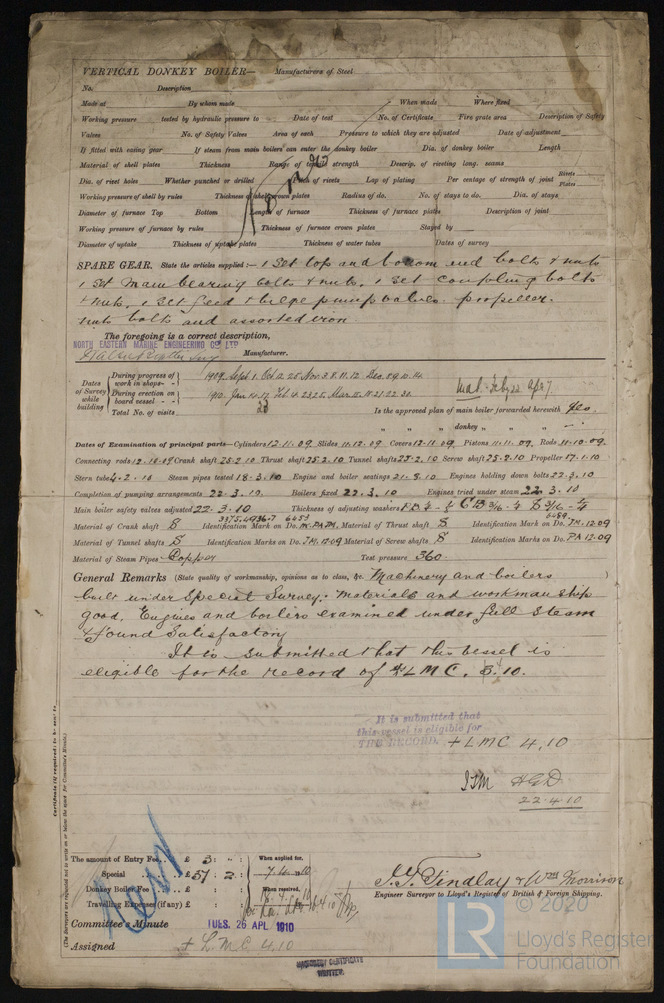 VERTICAL DONKEY BOILER— Manufacturers of Steel
No. Description
Made at By whom made When made Where fixed
Working pressure tested by hydraulic pressure to Date of test No. of Certificate Fire grate area Description of Safety
Valves No. of Safety Valves Area of each Pressure to which they are adjusted Date of adjustment
If fitted with easing gear If steam from main boilers can enter the donkey boiler Dia. of donkey boiler Length
Material of shell plates Thickness Range of tensile strength Descrip. of riveting long. seams
Dia. of rivet holes Whether punched or drilled Pitch of rivets Lap of plating Per centage of strength of joint Rivets Plates
Working pressure of shell by rules Thickness of shell crown plates Radius of do. No. of stays to do. Dia. of stays
Diameter of furnace Top Bottom Length of furnace Thickness of furnace plates Description of joint
Working pressure of furnace by rules Thickness of furnace crown plates Stayed by
Diameter of uptake Thickness of uptake plates Thickness of water tubes Dates of survey
SPARE GEAR. State the articles supplied:— 1 set top and bottom end bolts & nuts
1 set main bearing bolts & nuts, 1 set coupling bolts
& nuts, 1 set feed & bilge pump valves. propeller.
nuts bolts and assorted iron.
The foregoing is a correct description,
NORTH EASTERN MARINE ENGINEERING CO LTD
Manufacturer.
Dates of Survey while building
During progress of work in shops— 1909. Sept 1. Oct 12. 25. Nov 3. 8. 11. 12. Dec. 09. 10. 14.
During erection on board vessel— 1910. Jan 14. 17. Feb 4. 23. 25. Mar. 15. 18. 21. 22. 30.
Total No. of visits 20 Is the approved plan of main boiler forwarded herewith Yes.
" " " donkey " " " —
Dates of Examination of principal parts—Cylinders 12.11.09. Slides 11.12.09 Covers 12.11.09. Pistons 11.11.09. Rods 11.10.09.
Connecting rods 12.10.09 Crank shaft 25.2.10 Thrust shaft 25.2.10 Tunnel shafts 25.2.10 Screw shaft 25.2.10 Propeller 17.1.10
Stern tube 4.2.10 Steam pipes tested 18.3.10 Engine and boiler seatings 21.3.10 Engines holding down bolts 22.3.10
Completion of pumping arrangements 22.3.10. Boilers fixed 22.3.10 Engines tried under steam 22.3.10
Main boiler safety valves adjusted 22.3.10 Thickness of adjusting washers
Material of Crank shaft S Identification Mark on Do. Material of Thrust shaft S Identification Mark on Do. JM.12.09
Material of Tunnel shafts S Identification Marks on Do. JM.12.09 Material of Screw shafts S Identification Marks on Do. PA 12.09
Material of Steam Pipes Copper Test pressure 360
General Remarks (State quality of workmanship, opinions as to class, &c. Machinery and boilers
built under Special Survey: Materials and workmanship
good. Engines and boilers examined under full steam
& found satisfactory
It is submitted that this vessel is
eligible for the record of +LMC. 3.10.
It is submitted that
this vessel is eligible for
THE RECORD. + LMC 4.10
22.4.10
Certificate (if required) to be sent to
(The Surveyors are requested not to write on or below the space for Committee's Minute.)
The amount of Entry Fee.. £ 3 : " : When applied for,
Special £ 51 : 2 : 7.4.10
Donkey Boiler Fee £ : : When received,
Travelling Expenses (if any) £ : :
J. G. Findlay & Wm Morrison
Engineer Surveyor to Lloyd's Register of British & Foreign Shipping.
Committee's Minute TUES. 26 APL 1910
Assigned + L.M.C. 4.10
MACHINERY CERTIFICATE
WRITTEN.
LR © 2020
Lloyd's Register
Foundation